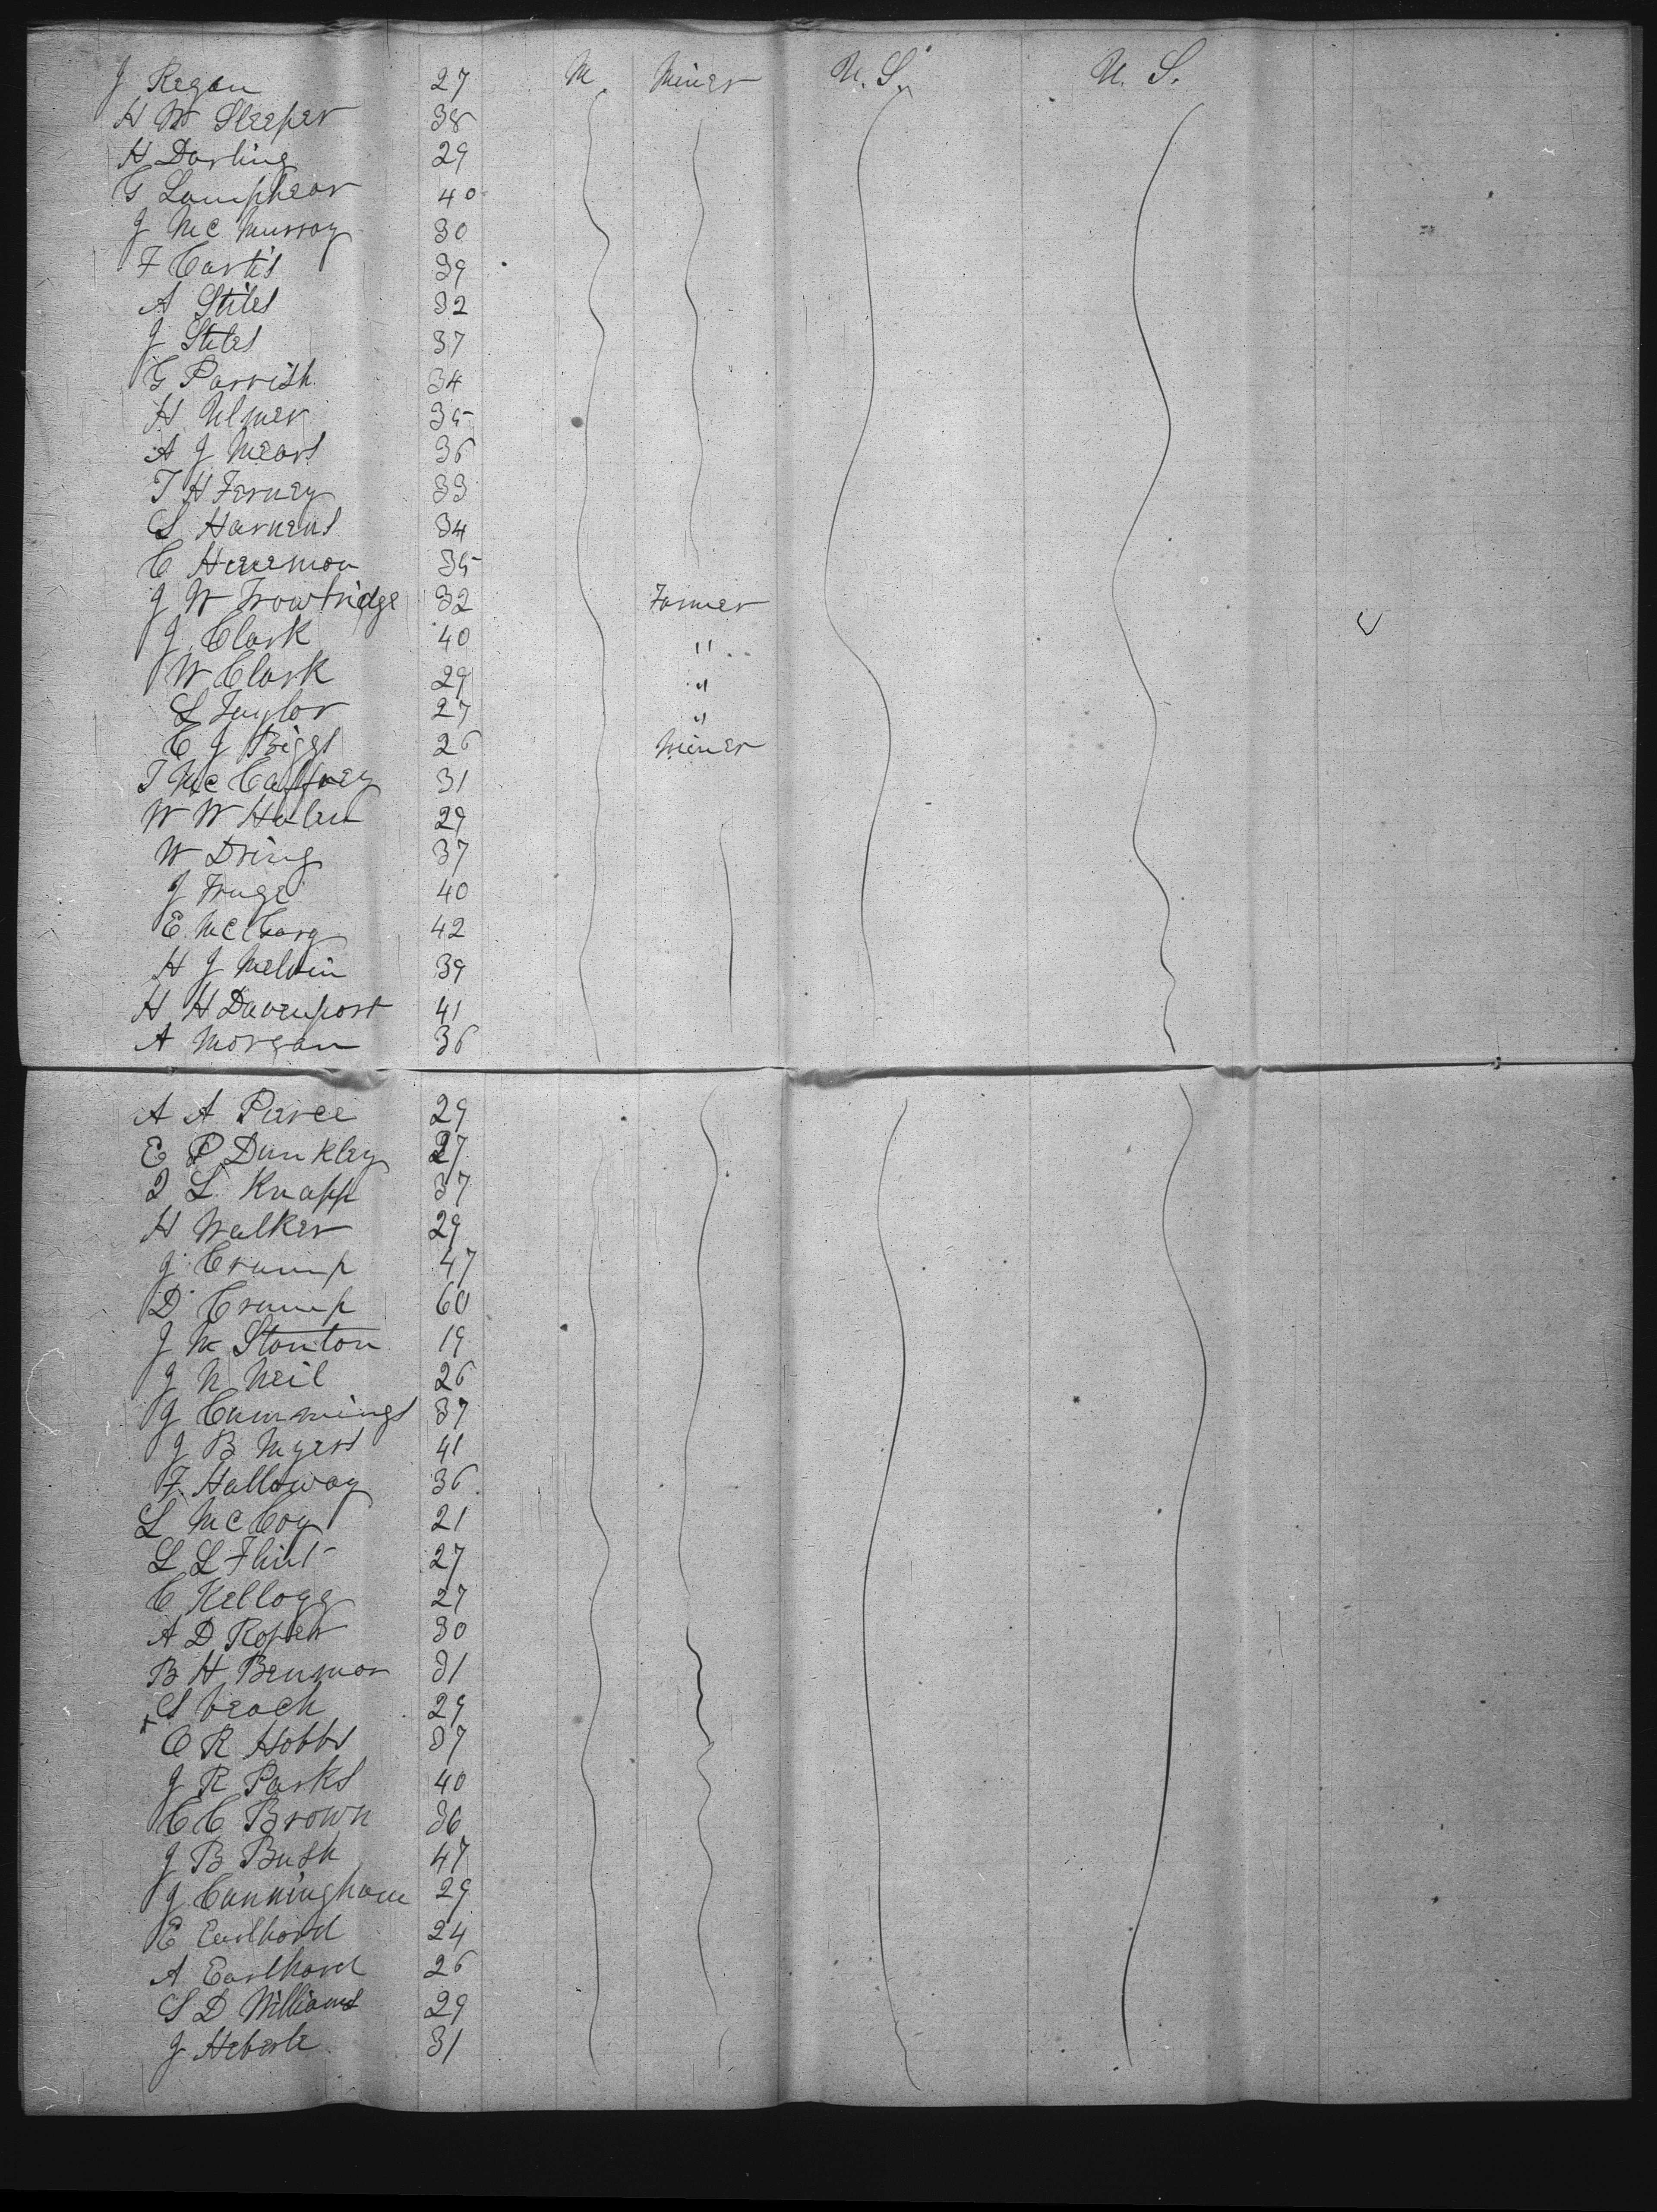 J Regan 27 M. Miner U. S. U. S.
H W Sleeper 38
H Darling 29
G Lamphear 40
J McMurray 30
F Curtis 39
A Stiles 32
J Stiles 37
G Parrish 34
H Ulmer 35
A J Mears 36
T H Ferney 33
S Harnens 34
C 35
J W Trowbridge 32 Farmer
J Clark 40 "
W Clark 29 "
L Taylor 27 "
C J Biggs 26 Miner
T McCaffrey 31
W W Hulen 29
W Dring 37
J Fruge 40
E 42
H J Melvin 39
H H Davenport 41
A Morgan 36
A A Parce 29
E P Dunkley 27
L Knapp 37
H Walker 29
J Crump 47
D Crump 60
J W Stanton 19
J N Neil 26
J Cummings 37
J B Myers 41
F Halloway 36
L McCoy 21
L L Flint 27
C Kellogg 27
A D Roper 30
B H Benmor 31
x S Veach 29
C R Hobbs 37
J R Parks 40
C C Brown 36
J B Bush 47
J Cunningham 29
E Earlhard 24
A Earlhard 26
S D Williams 29
J Heberle 31